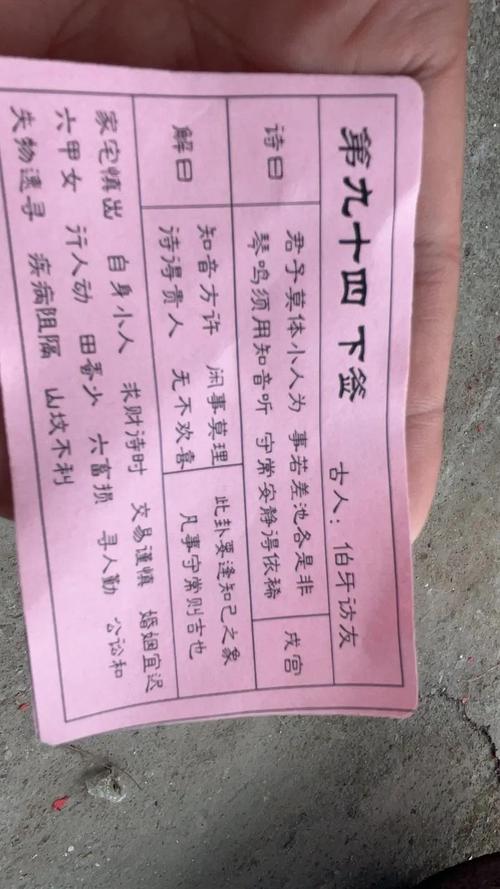 第九十四 下签 古人：伯牙访友
诗曰
君予莫体小人为 事若差池各是非
琴鸣须用知音听 守常安静得依稀
戌宫
解曰
知音方许 闲事莫理
诗得贵人 无不欢喜
此卦要逢知己之象
凡事守常则吉也
家宅慎出 自身小人 求财诗时 交易谨慎 婚姻宜迟
六甲女 行人动 田蚕少 六畜损 寻人勤 公讼和
失物速寻 疾病阻隔 山坟不利